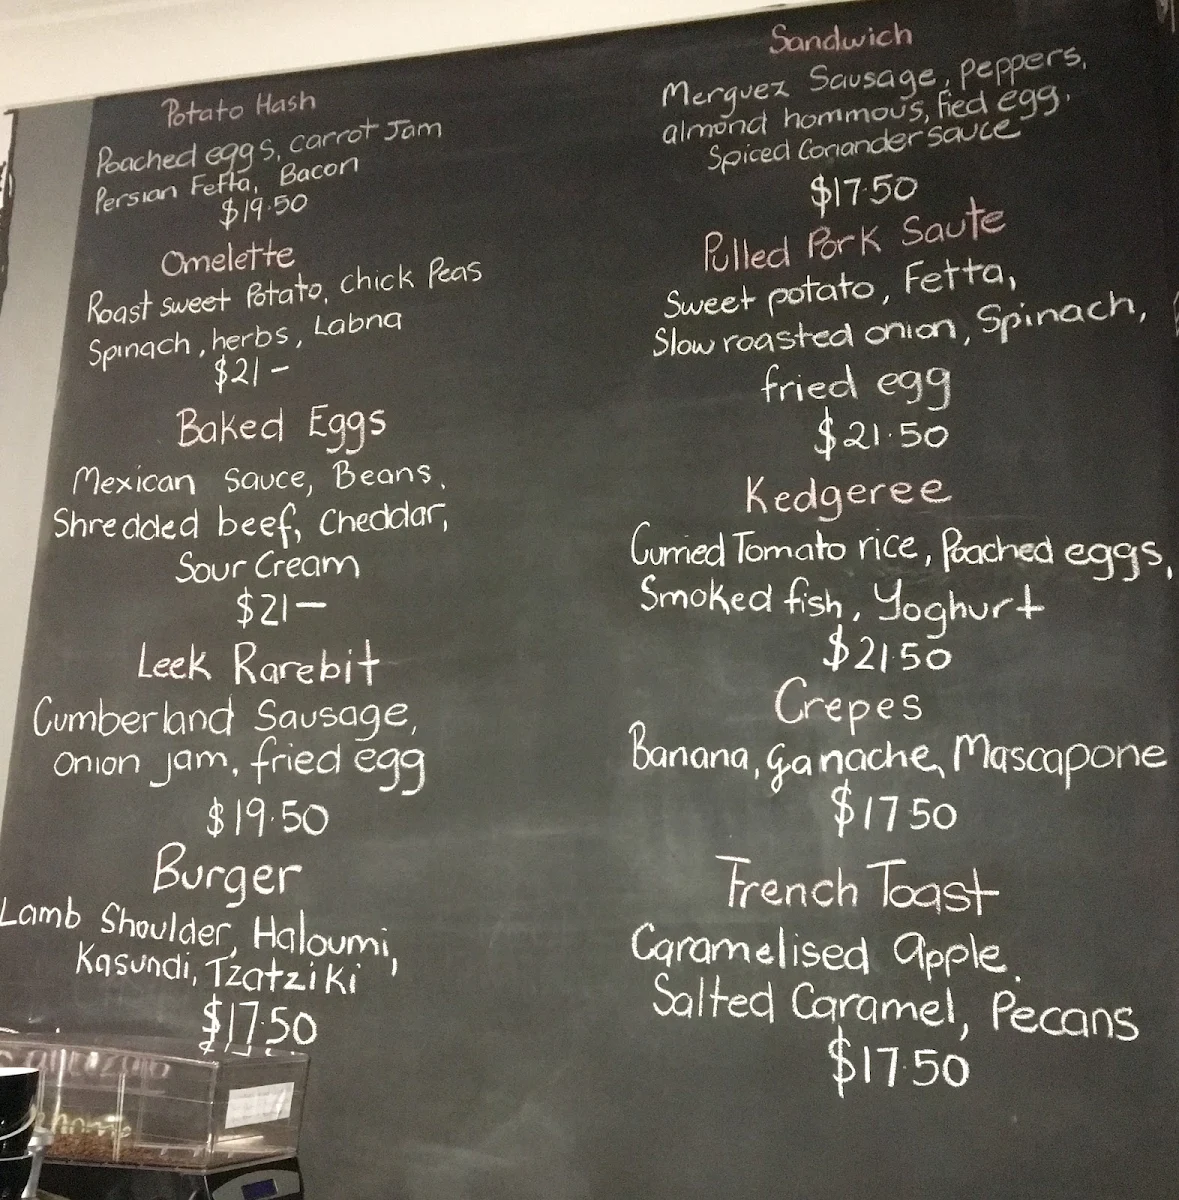 Potato Hash
Poached eggs, carrot Jam
Persian Fetta, Bacon
$19.50
Omelette
Roast sweet Potato, chick Peas
Spinach, herbs, Labna
$21-
Baked Eggs
Mexican Sauce, Beans,
Shredded beef, Cheddar,
Sour Cream
$21-
Leek Rarebit
Cumberland Sausage,
onion jam, fried egg
$19.50
Burger
Lamb Shoulder, Haloumi,
Kasundi, Tzatziki
$17.50
Sandwich
Merguez Sausage, Peppers,
almond hommous, fied egg,
Spiced Coriander sauce
$17.50
Pulled Pork Saute
Sweet potato, Fetta,
Slow roasted onion, Spinach,
fried egg
$21.50
Kedgeree
Curried Tomato rice, Poached eggs,
Smoked fish, Yoghurt
$21.50
Crepes
Banana, ganache, Mascapone
$17.50
French Toast
Caramelised apple,
Salted Caramel, Pecans
$17.50